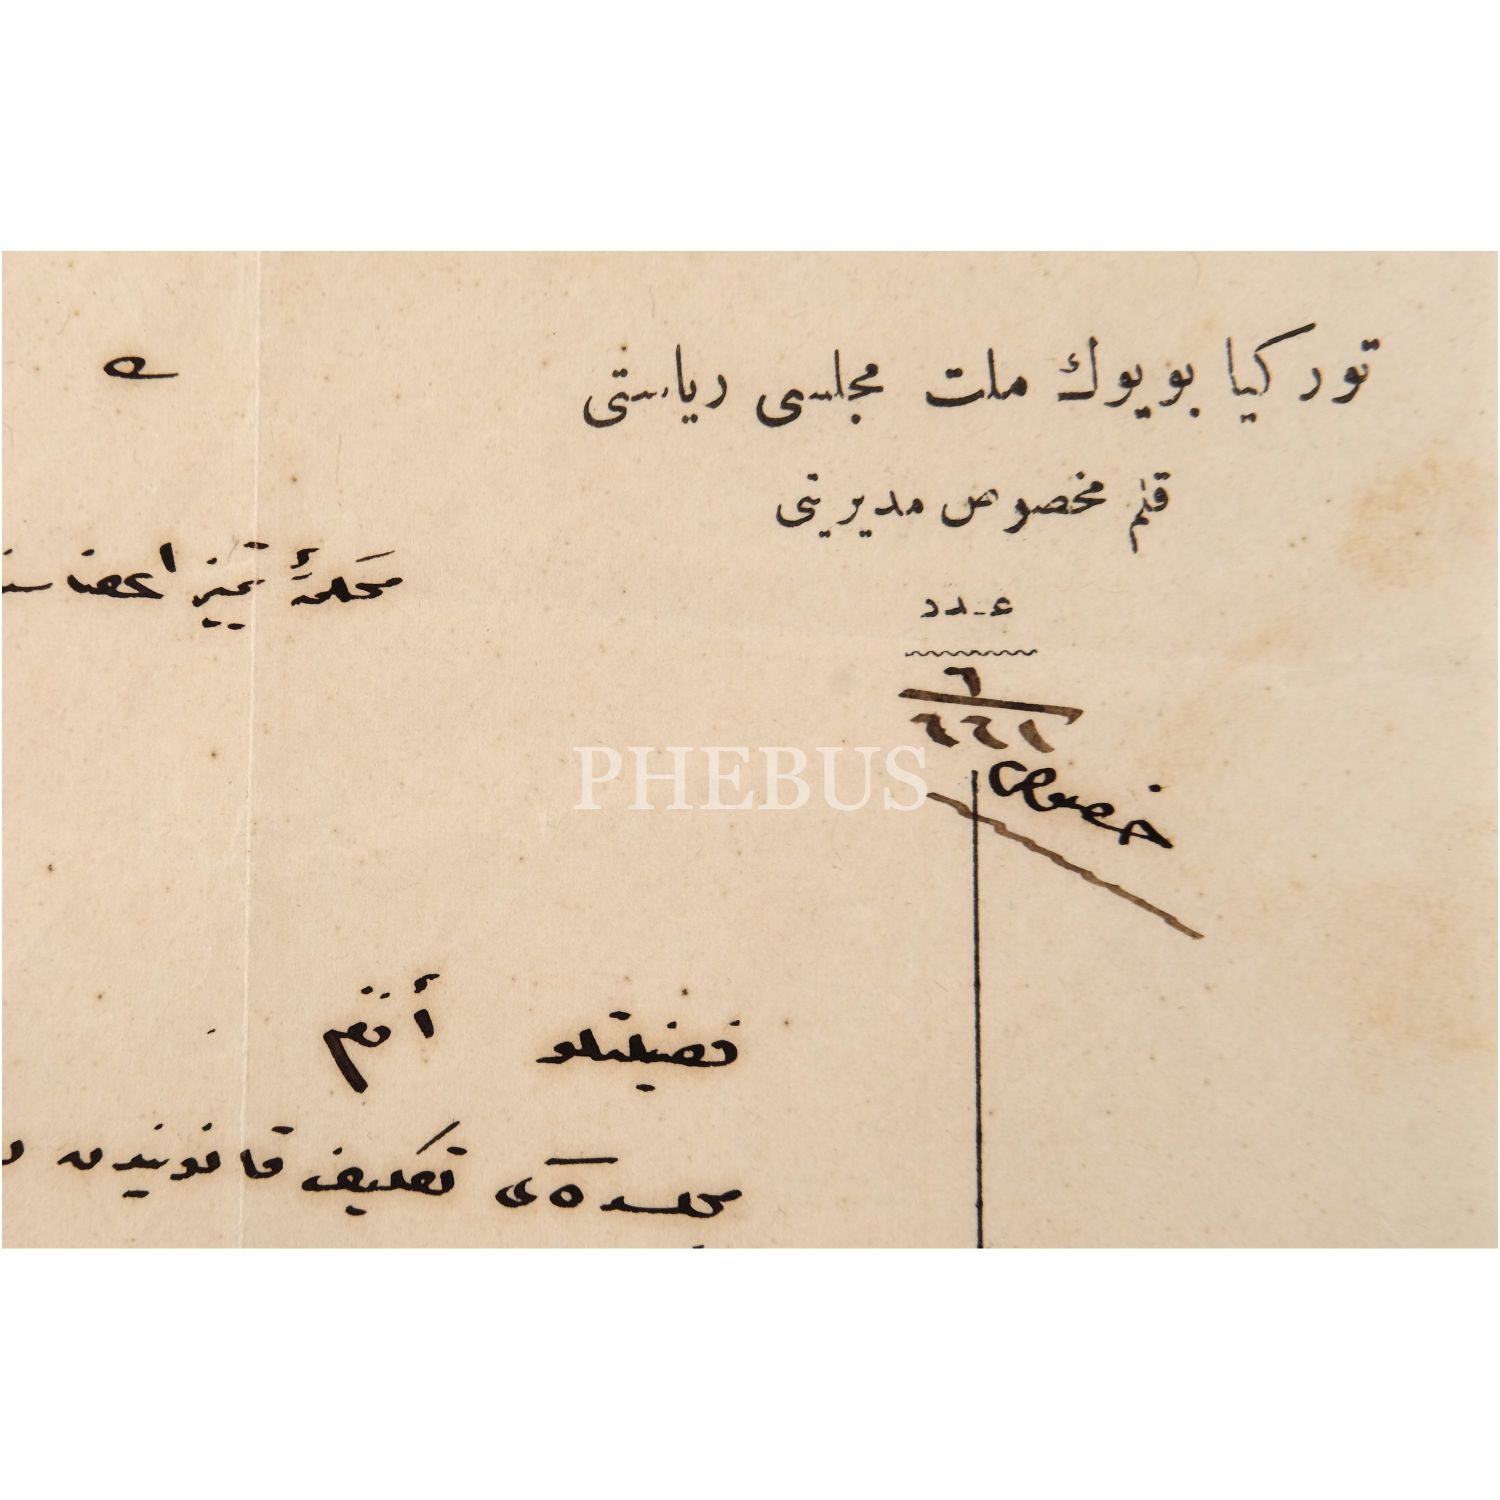 توركيا بويوك ملت مجلسى رياستى
قلم مخصوص مديريتى
عدد
٦
٦٦١
خصوصى
محكمۀ تمييز اعضاسند
فضيلتلو أفندم
مجلسده‌كى تكليف قانونيدن
PHEBUS